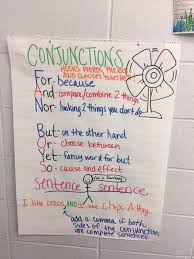 CONJUNCTIONS
HOOKS WORDS, PHRASES,
AND CLAUSES TOGETHER
For- because
And- compare/combine 2 things
Nor- linking 2 things you don't do
But- on the other hand
Or- choose between
Yet- fancy word for but
So- cause and effect
sentence sentence
I like OREOS AND I like Chips Ahoy.
add a comma if both
sides of the conjunction
are complete sentences